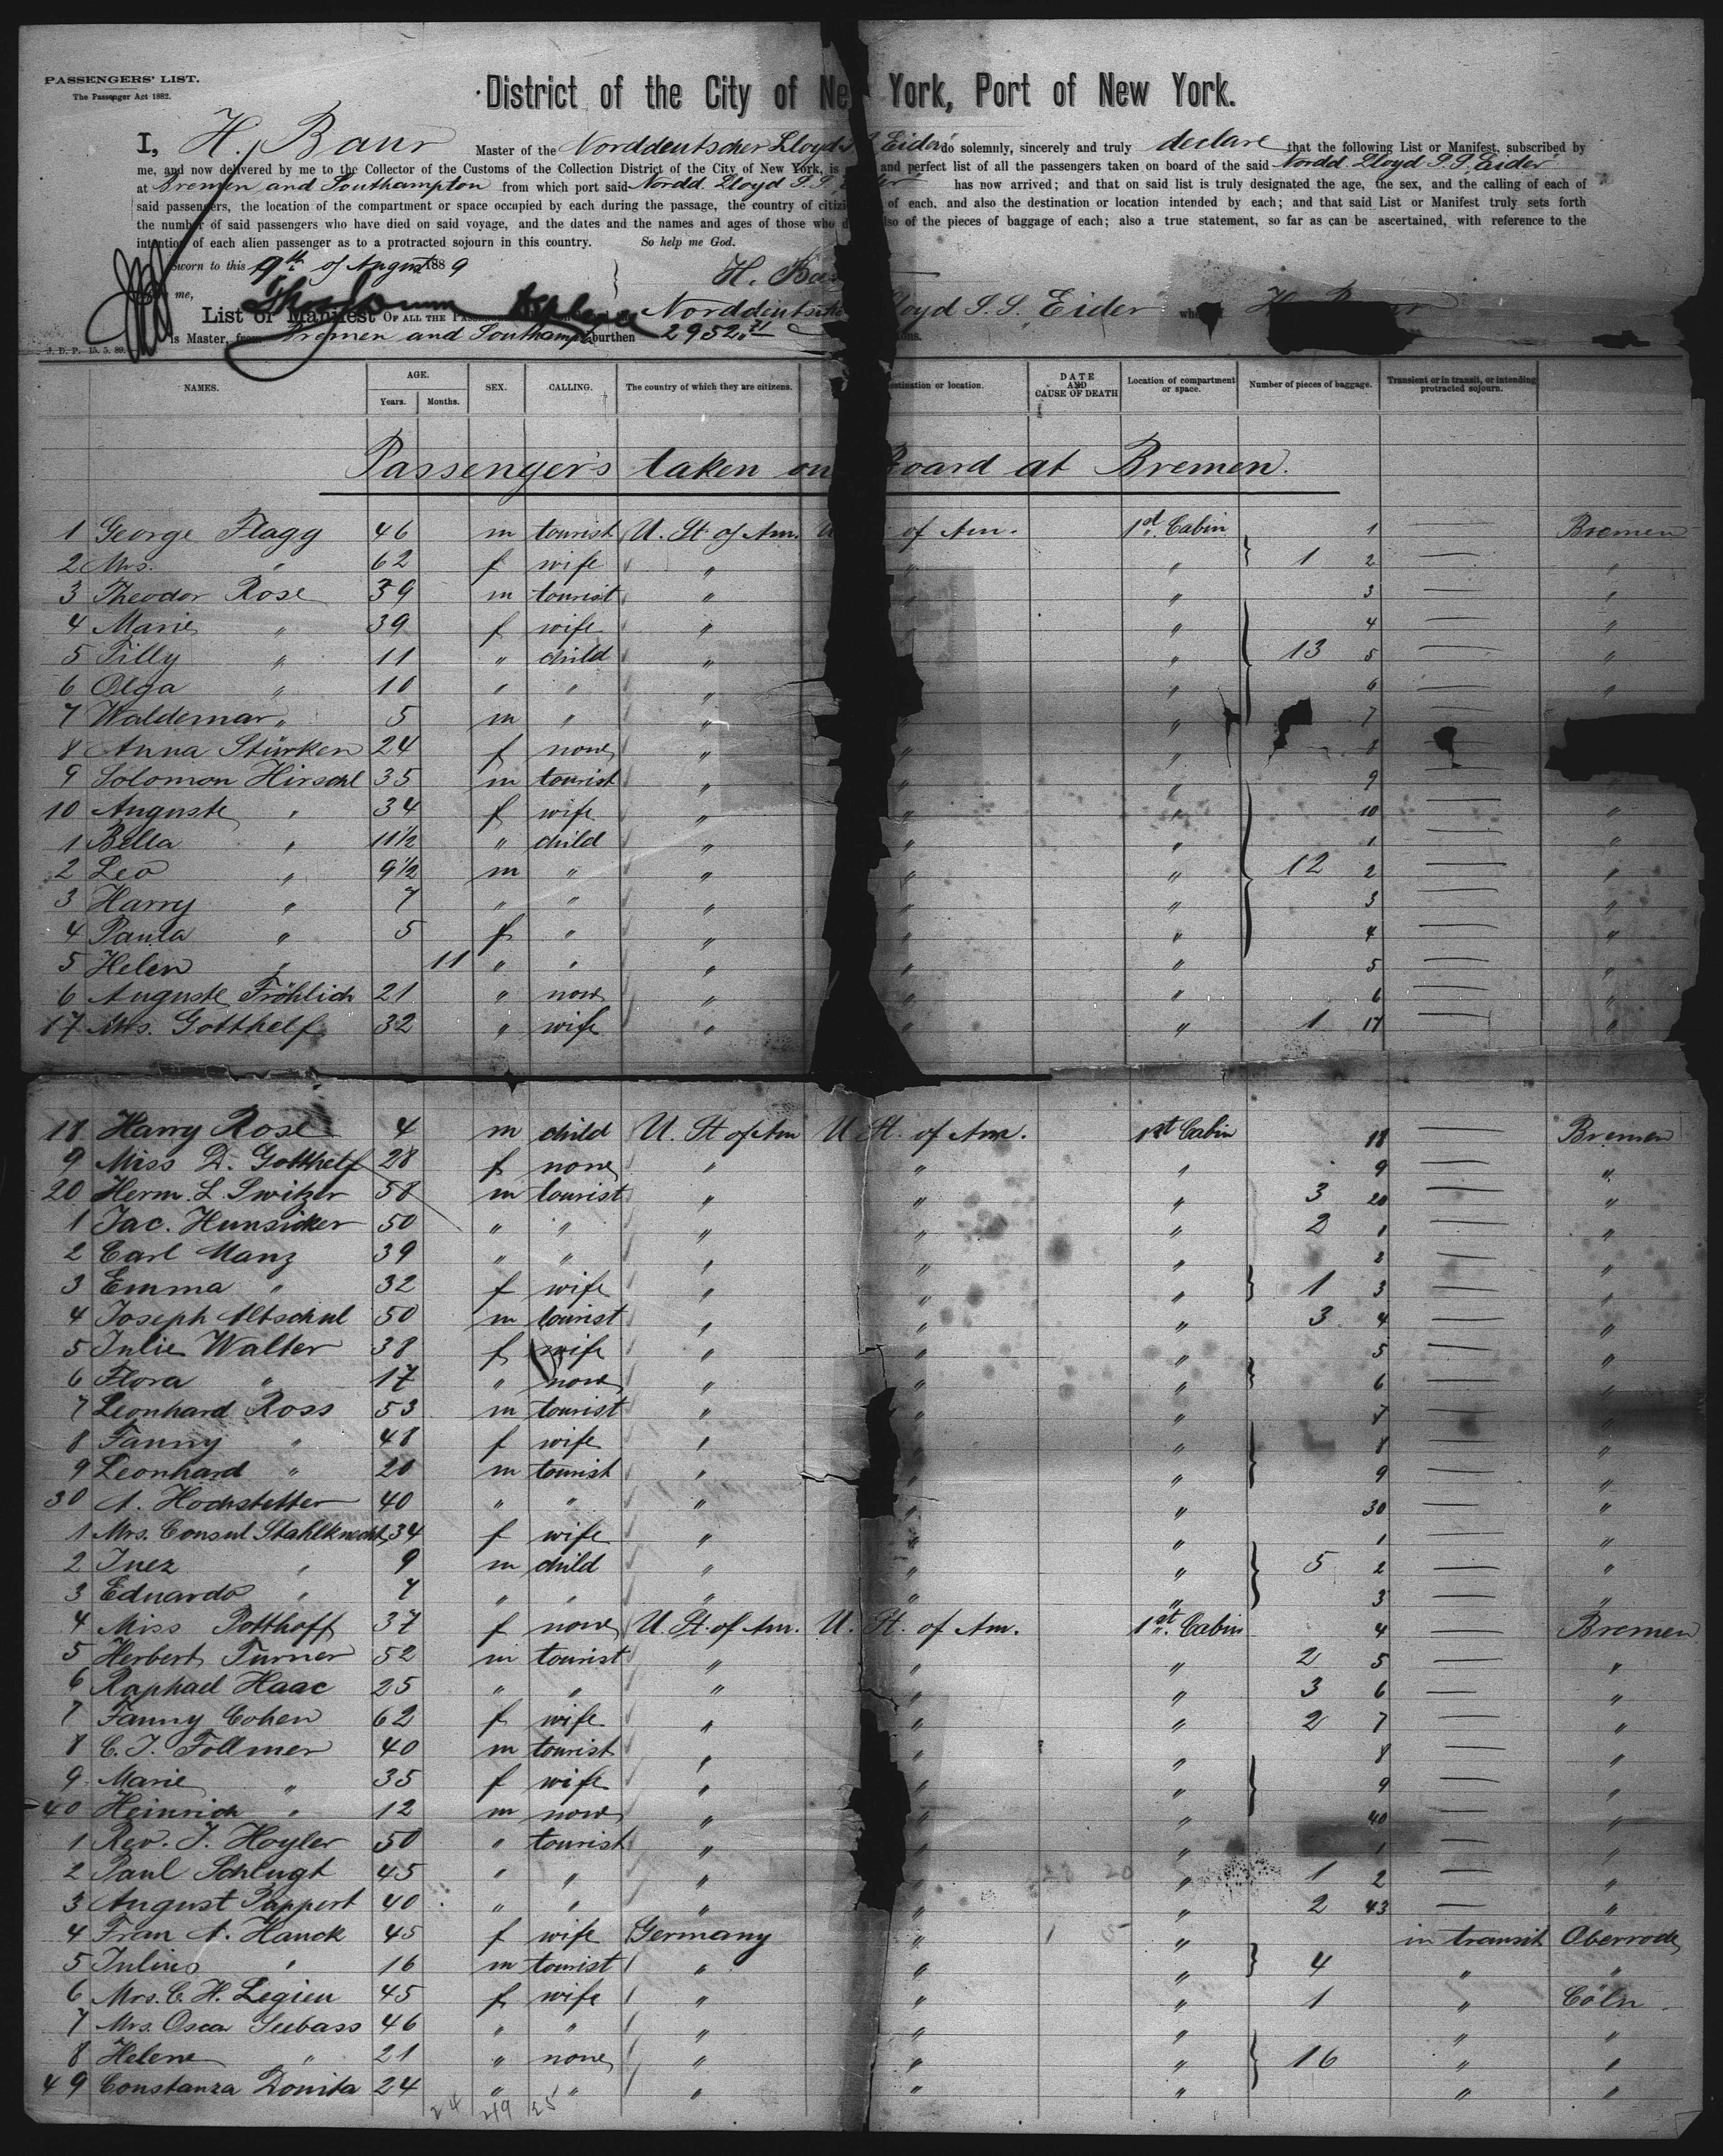 PASSENGERS' LIST.
The Passenger Act 1882.
District of the City of New York, Port of New York.
I, H. Baur Master of the Norddeutscher Lloyd S Eider do solemnly, sincerely and truly declare that the following List or Manifest, subscribed by
me, and now delivered by me to the Collector of the Customs of the Collection District of the City of New York, is and perfect list of all the passengers taken on board of the said Nordd. Lloyd S.S. Eider
at Bremen and Southampton from which port said Nordd. Lloyd S.S. has now arrived; and that on said list is truly designated the age, the sex, and the calling of each of
said passengers, the location of the compartment or space occupied by each during the passage, the country of of each, and also the destination or location intended by each; and that said List or Manifest truly sets forth
the number of said passengers who have died on said voyage, and the dates and the names and ages of those who of the pieces of baggage of each; also a true statement, so far as can be ascertained, with reference to the
intention of each alien passenger as to a protracted sojourn in this country. So help me God.
Sworn to this 9th of August 1889
me, H. Bau
List or Manifest OF ALL THE Norddeutsche Lloyd S.S. Eider
is Master, from Bremen and Southampt. burthen 2952.71
J. D. P. 15. 5. 89.
NAMES. AGE. Years. Months. SEX. CALLING. The country of which they are citizens. destination or location. DATE AND CAUSE OF DEATH Location of compartment or space. Number of pieces of baggage. Transient or in transit, or intending protracted sojourn.
Passengers taken on Board at Bremen.
1 George Flagg 46 m tourist U. St. of Am. U of Am. 1st Cabin 1 — Bremen
2 Mrs. " 62 f wife " " " 1 2 — "
3 Theodor Rose 39 m tourist " " 3 — "
4 Marie " 39 f wife " " 4 — "
5 Tilly " 11 " child " " 13 5 — "
6 Olga " 10 " " " " 6 — "
7 Waldemar " 5 m " " " 7 —
8 Anna Stürken 24 f none " " " 8
9 Solomon Hirschl 35 m tourist " " " 9 —
10 Auguste " 34 f wife " " " 10 — "
1 Bella " 11½ " child " " " 1 — "
2 Leo " 9½ m " " " " 12 2 — "
3 Harry " 7 " " " " " 3 — "
4 Paula " 5 f " " " " 4 — "
5 Helen " 11 " " " " " 5 — "
6 Auguste Fröhlich 21 " none " " " 6 — "
17 Mrs. Gotthelf 32 " wife " " " 1 17 — "
18 Harry Rose 4 m child U. St of Am U St. of Am. 1st Cabin 18 — Bremen
9 Miss D. Gotthelf 28 f none " " " 9 — "
20 Herm. L. Switzer 58 m tourist " " " 3 20 — "
1 Jac. Hunsicker 50 " " " " " 2 1 — "
2 Carl Manz 39 " " " " " 2 — "
3 Emma " 32 f wife " " " 1 3 — "
4 Joseph Altschul 50 m tourist " " " 3 4 — "
5 Julie Walter 38 f wife " " " 5 — "
6 Flora " 17 " none " " " 6 — "
7 Leonhard Ross 53 m tourist " " " 7 — "
8 Fanny " 48 f wife " " " 8 — "
9 Leonhard " 20 m tourist " " " 9 — "
30 A. Hochstetter 40 " " " " " 30 — "
1 Mrs. Consul Stahlknecht 34 f wife " " " 1 — "
2 Inez " 9 m child " " " 5 2 — "
3 Eduardo " 7 " " " " " 3 — "
4 Miss Potthoff 37 f none U. St. of Am. U. St. of Am. 1st Cabin 4 — Bremen
5 Herbert Turner 52 m tourist " " " 2 5 — "
6 Raphael Haac 25 " " " " " 3 6 — "
7 Fanny Cohen 62 f wife " " " 2 7 — "
8 C. J. Follmer 40 m tourist " " " 8 — "
9 Marie " 35 f wife " " " 9 — "
40 Heinrich " 12 m none " " " 40 — "
1 Rev. J. Hoyler 50 " tourist " " " 1 — "
2 Paul Schlugt 45 " " " " " 1 2 — "
3 August Pappert 40 " " " " " 2 43 — "
4 Frau A. Hauck 45 f wife Germany " " in transit Oberrode
5 Julius " 16 m tourist " " " 4 " "
6 Mrs. C. H. Legien 45 f wife " " " 1 " Cöln
7 Mrs. Oscar Seebass 46 " " " " " " "
8 Helene " 21 " none " " " 16 " "
49 Constanza Donita 24 " " " " " " "
24 249 25